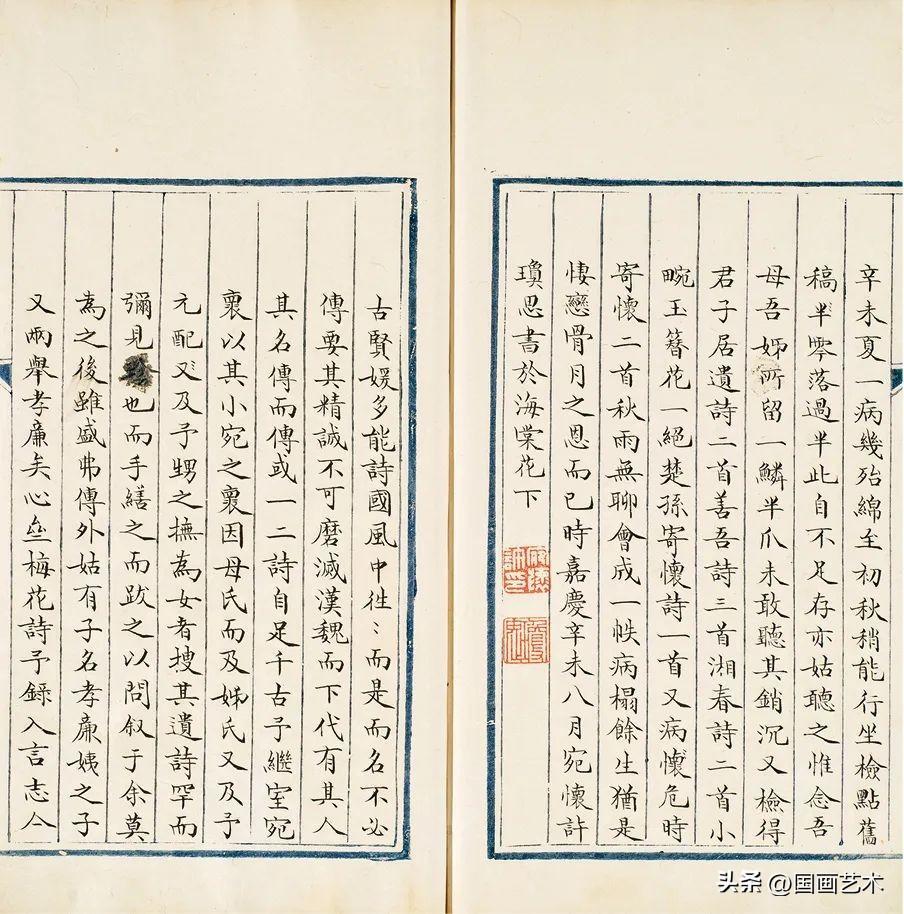 辛未夏一病幾殆綿至初秋稍能行坐檢點舊
稿半零落過半此自不足存亦姑聽之惟念吾
母吾姊所留一鱗半爪未敢聽其銷沉又檢得
君子居遺詩二首善吾詩三首湘春詩二首小
畹玉簪花一絕楚孫寄懷詩一首又病懷危時
寄懷二首秋雨無聊會成一帙病榻餘生猶是
悽戀骨月之恩而已時嘉慶辛未八月宛懷許
瓊思書於海棠花下
古賢媛多能詩國風中徃〻而是而名不必
傳要其精誠不可磨滅漢魏而下代有其人
其名傳而傳或一二詩自足千古予繼室宛
褱以其小宛之褱因母氏而及姊氏又及予
元配又及予甥之撫為女者搜其遺詩罕而
彌見也而手繕之而跋之以問叙于余莫
為之後雖盛弗傳外姑有子名孝廉姨之子
又兩舉孝廉矣心壺梅花詩予錄入言志亼
头条 @国画艺术